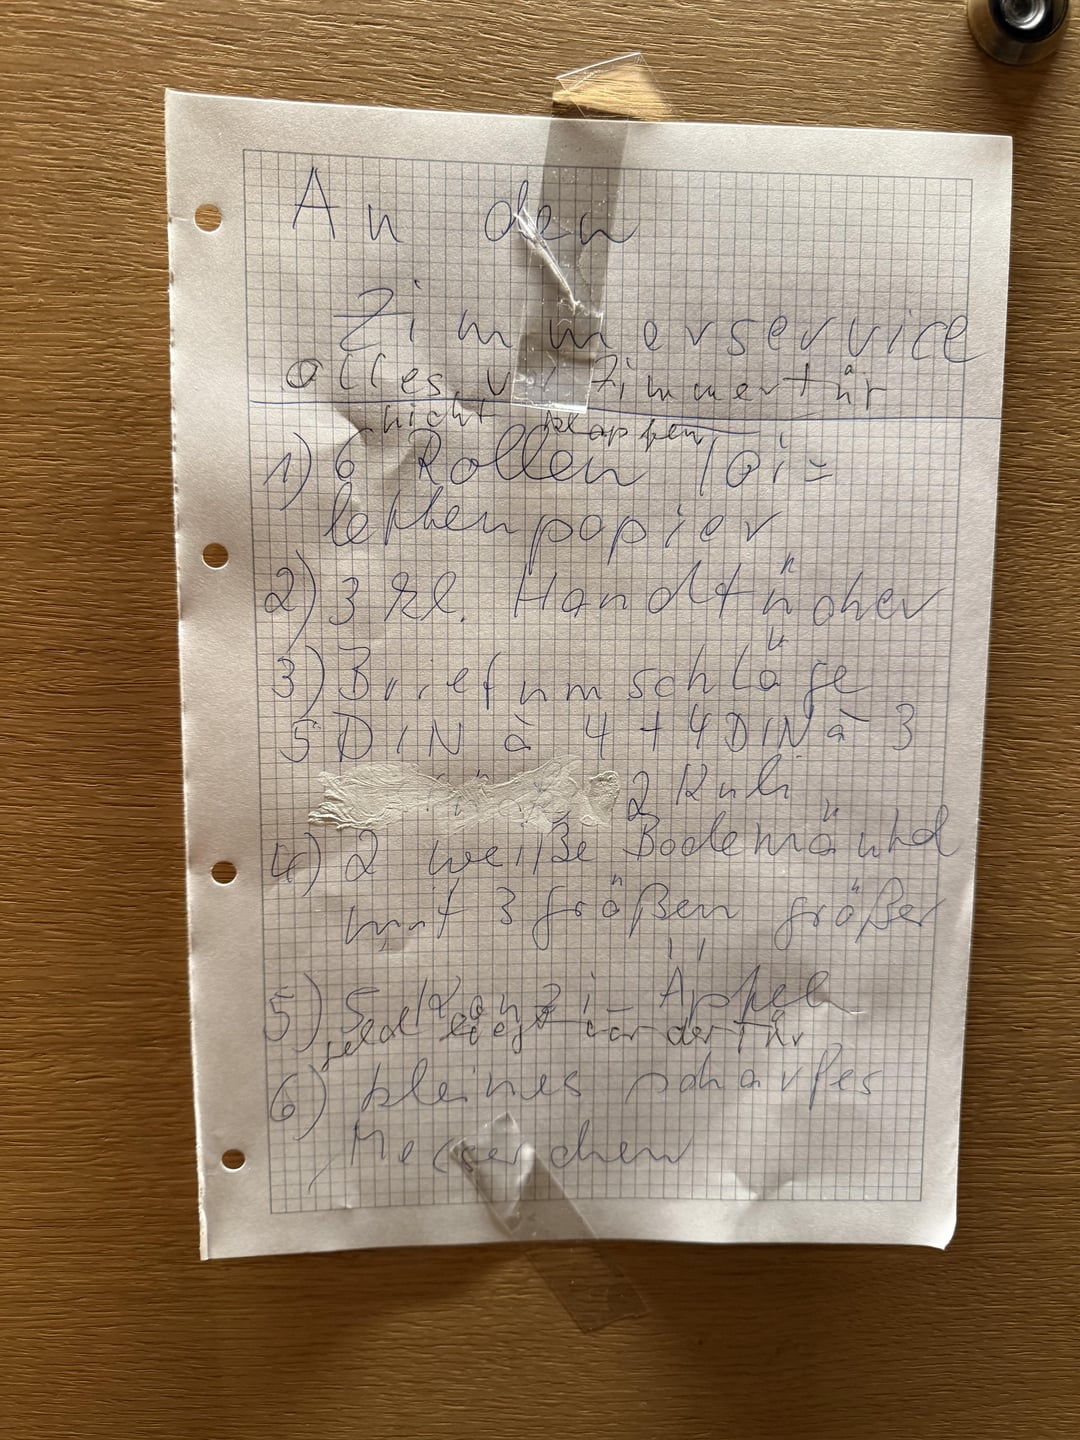 An den
Zimmerservice
alles vor Zimmertür
nicht klopfen
1) 6 Rollen Toi=
lettenpapier
2) 3 kl. Handtücher
3) Briefumschläge
5 DIN à 4 + 4 DIN à 3
2 Kuli
4) 2 weiße Bademäntel
mit 3 größen größer
5) 5 Äpfel
Geld liegt vor der Tür
6) kleines scharfes
Messerchen